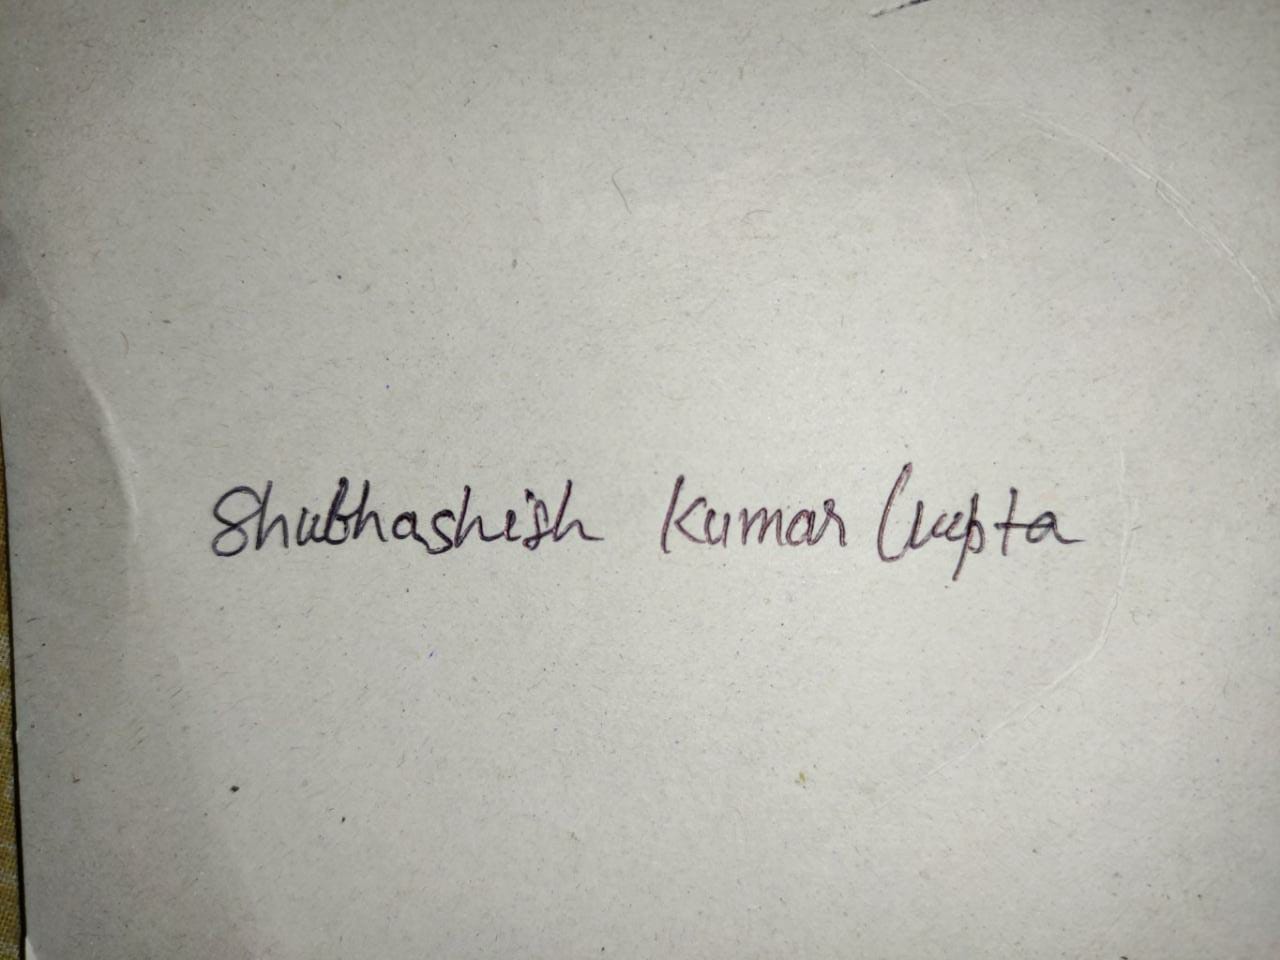 Shubhashish Kumar Gupta